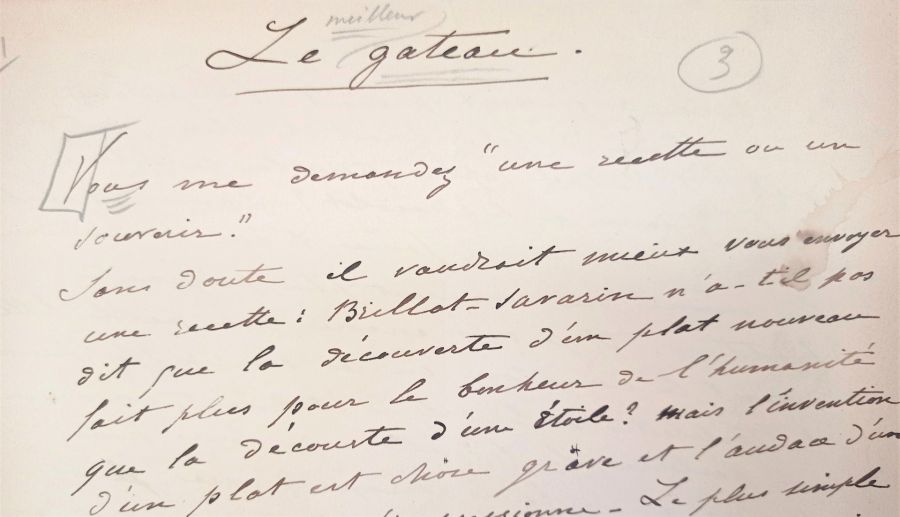 meilleur
Le gateau.
3
Vous me demandez "une recette ou un
souvenir."
Sans doute il vaudrait mieux vous envoyer
une recette : Brillat-Savarin n'a-t-il pas
dit que la découverte d'un plat nouveau
fait plus pour le bonheur de l'humanité
que la découverte d'une étoile? mais l'invention
d'un plat est chose grave et l'audace d'un
Le plus simple